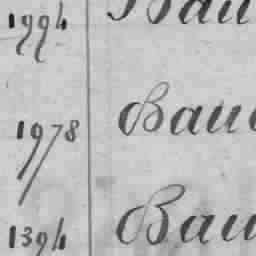 1994 Bau
1978 Bau
1394 Bau